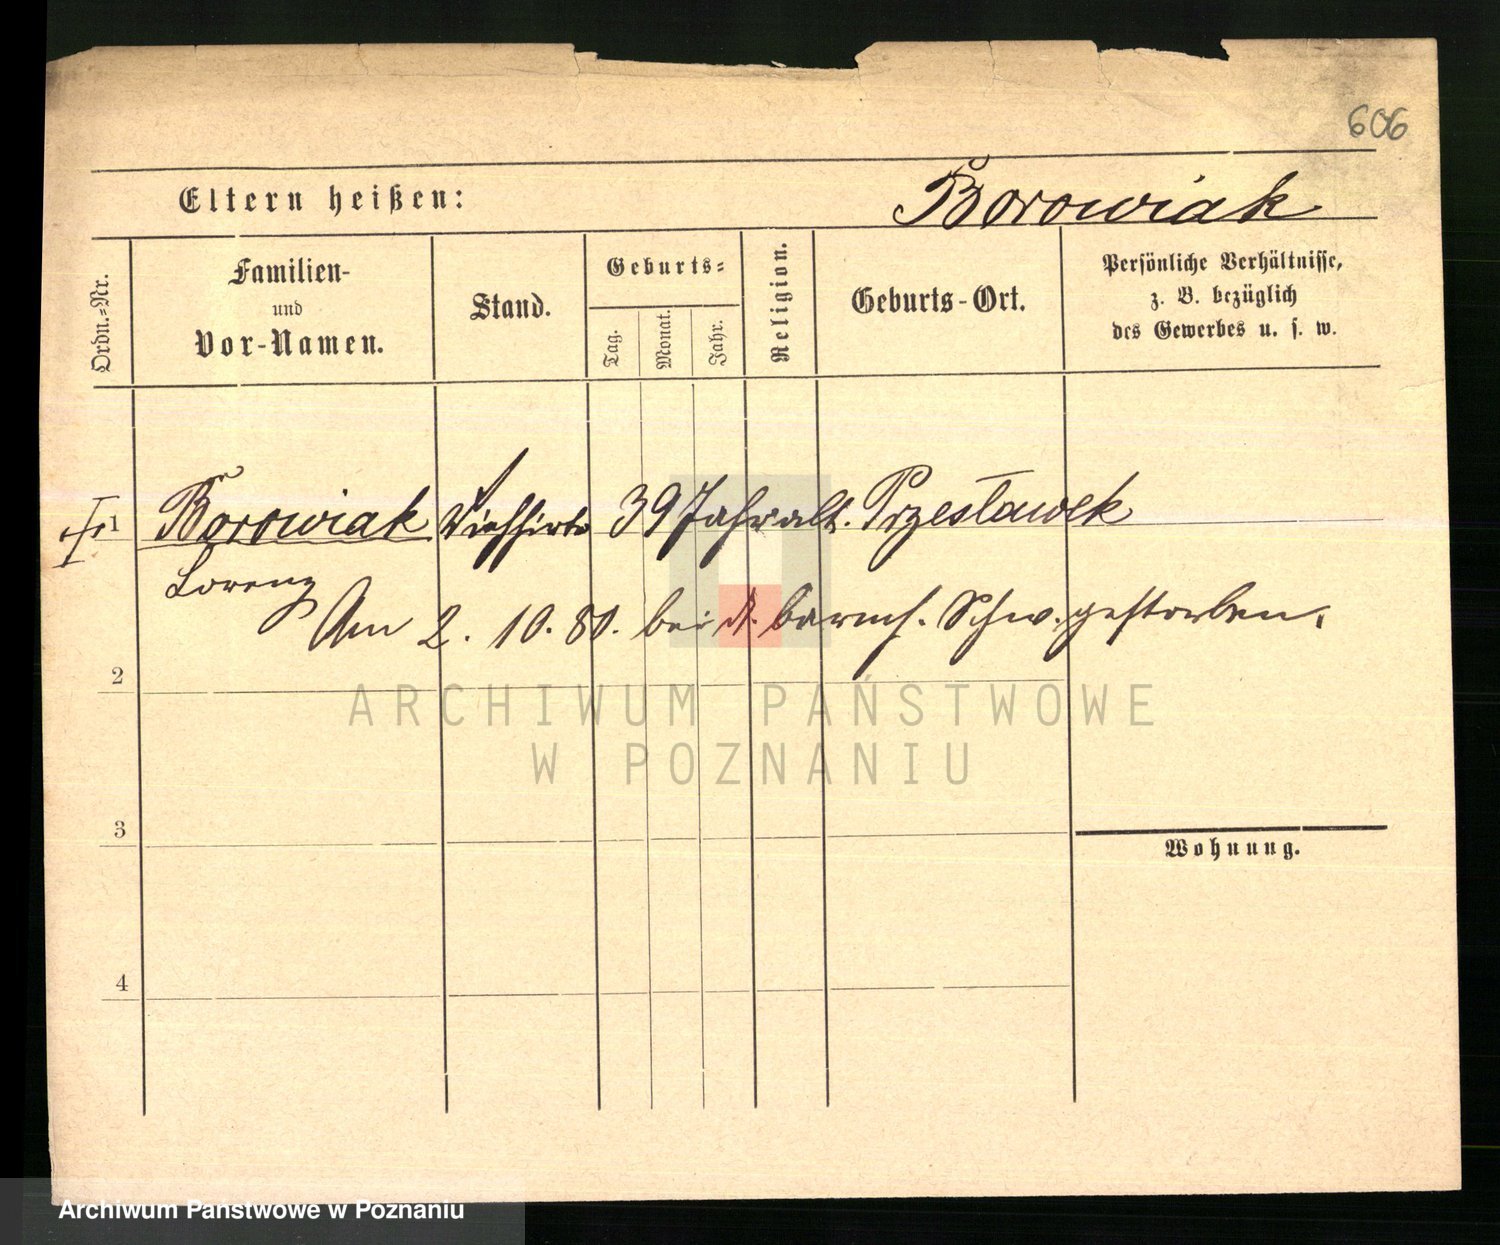 606
Eltern heißen:
Borowiak
Ordn.-Nr.
Familien-
und
Vor-Namen.
Stand.
Geburts-
Tag.
Monat.
Jahr.
Religion.
Geburts-Ort.
Persönliche Verhältnisse,
z. B. bezüglich
des Gewerbes u. s. w.
1 Borowiak Viehhirte 39 Jahr alt. Przesławek
Lorenz
Am 2. 10. 80. bei d. barmh. Schw. gestorben.
2
ARCHIWUM PAŃSTWOWE
W POZNANIU
3
Wohnung.
4
Archiwum Państwowe w Poznaniu